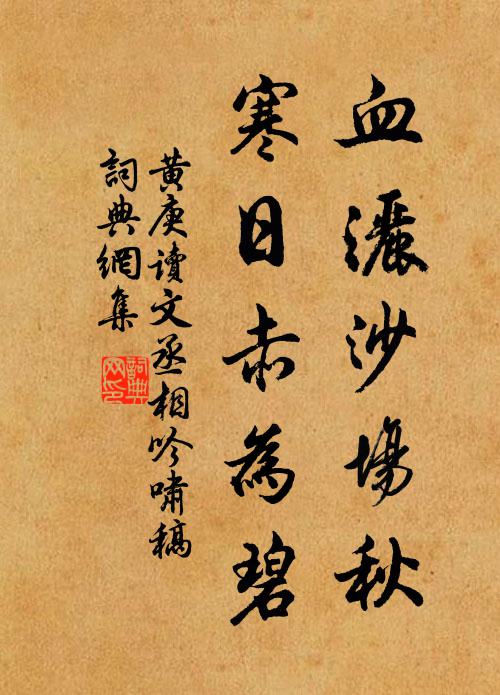 血灑沙場秋
寒日赤為碧
黃庚讀文丞相吟嘯稿
詞典網集
詞典
网印